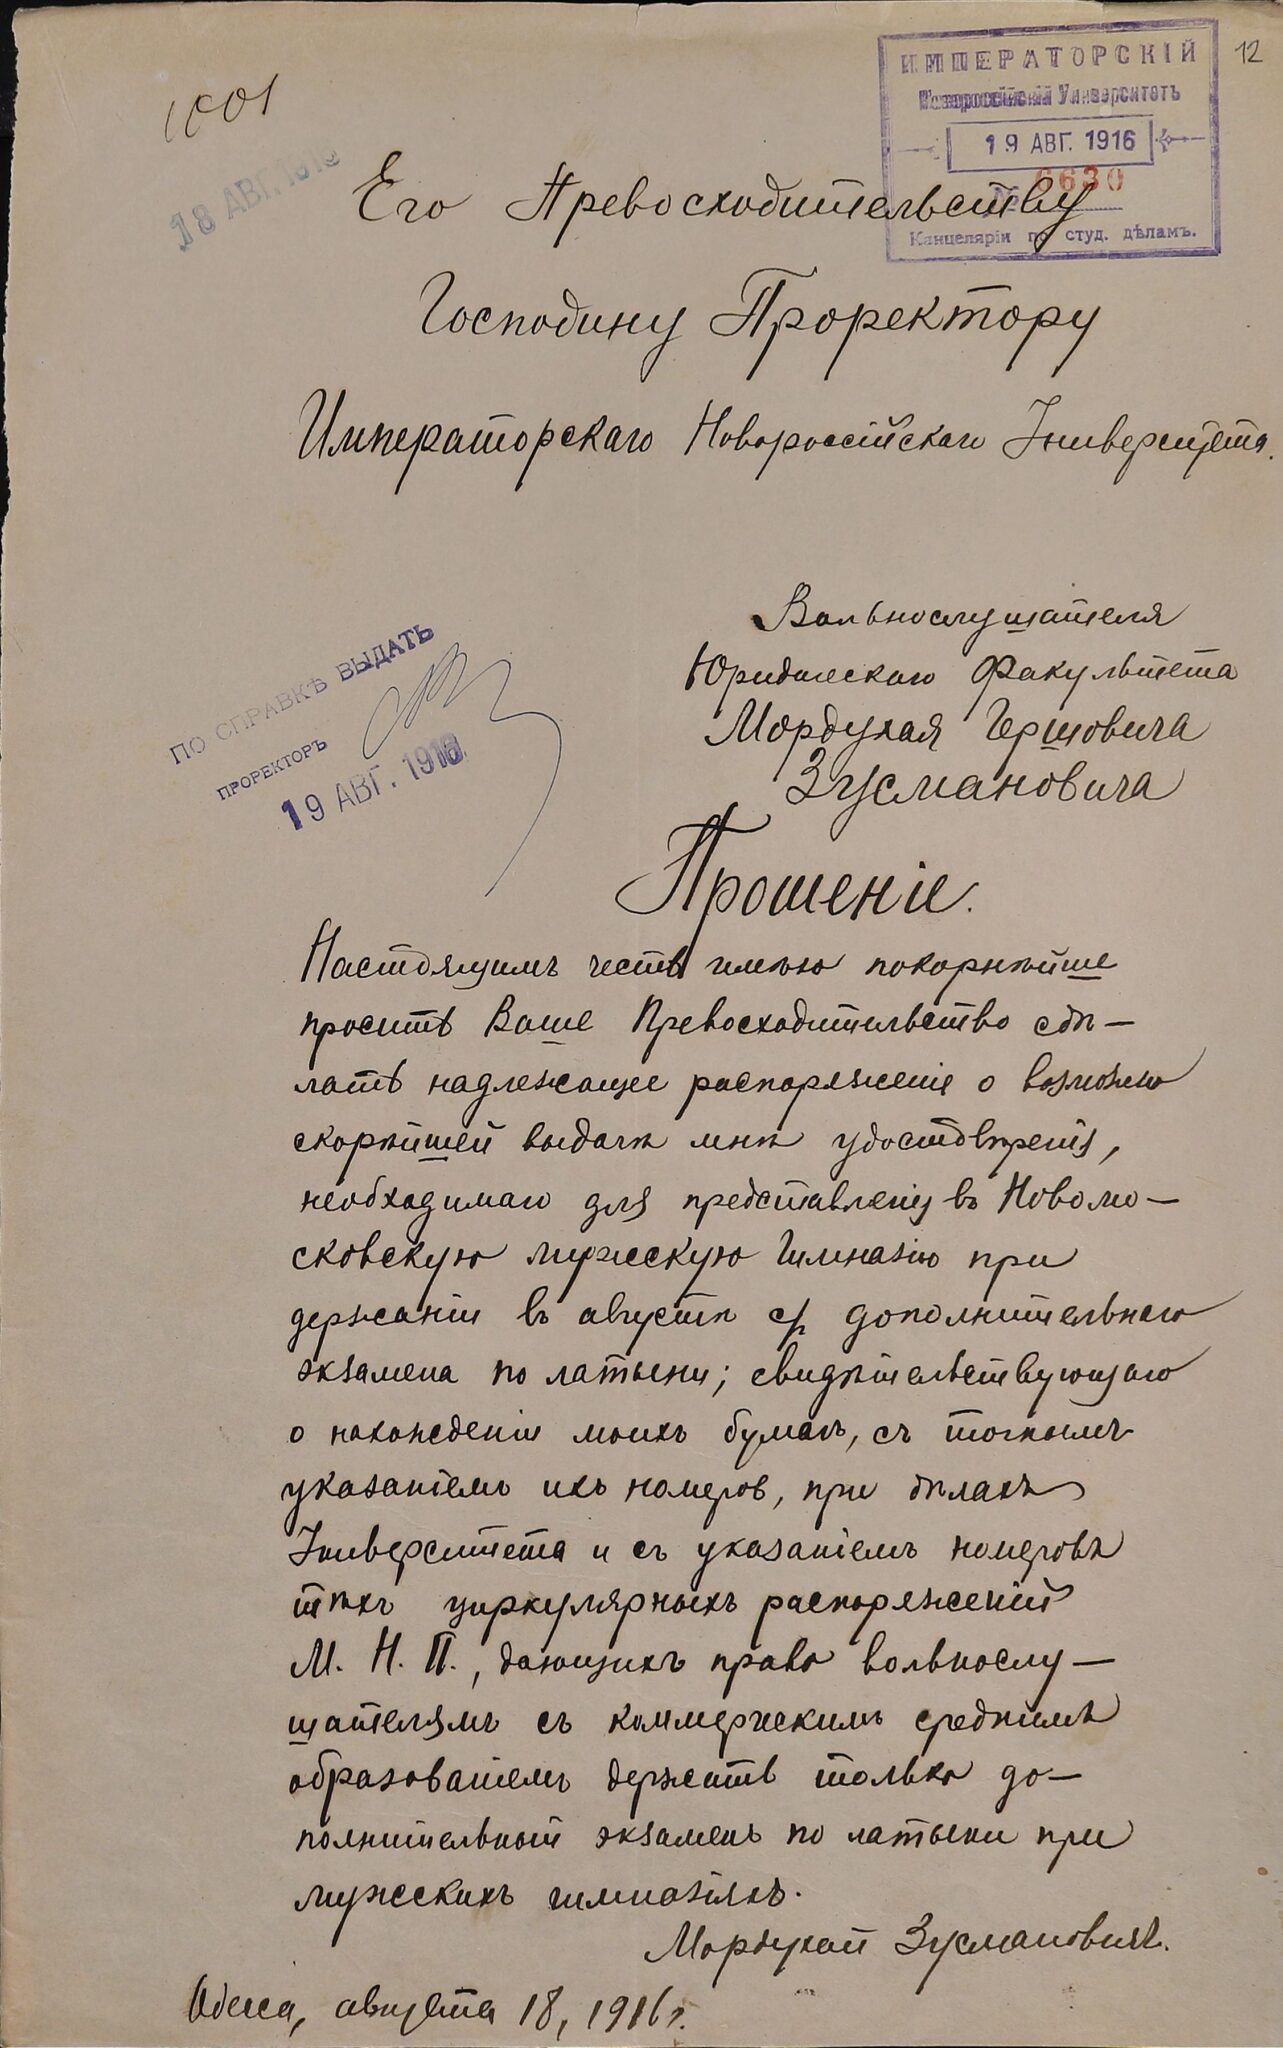 12
ИМПЕРАТОРСКІЙ
Новороссійскій Университетъ
19 АВГ. 1916
№ 6630
Канцелярія по студ. дѣламъ.
1001
18 АВГ. 1916
Его Превосходительству
Господину Проректору
Императорскаго Новороссійскаго Университета.
Вольнослушателя
Юридическаго Факультета
Мордухая Гершовича
Зусмановича
ПО СПРАВКѢ ВЫДАТЬ
ПРОРЕКТОРЪ
19 АВГ. 1916
Прошеніе.
Настоящимъ честь имѣю покорнѣйше
просить Ваше Превосходительство сдѣ-
лать надлежащее распоряженіе о возможно
скорѣйшей выдачѣ мнѣ удостовѣренія,
необходимаго для представленія въ Новомо-
сковскую мужескую Гимназію при
держаніи въ августѣ с/г дополнительнаго
экзамена по латыни; свидѣтельствующаго
о нахожденіи моихъ бумагъ, съ точнымъ
указаніемъ ихъ номеровъ, при дѣлахъ
Университета и съ указаніемъ номеровъ
тѣхъ циркулярныхъ распоряженій
М. Н. П., дающихъ право вольнослу-
шателямъ съ коммерческимъ среднимъ
образованіемъ держать только до-
полнительный экзаменъ по латыни при
мужескихъ гимназіяхъ.
Мордухай Зусмановичъ.
Одесса, августа 18, 1916 г.